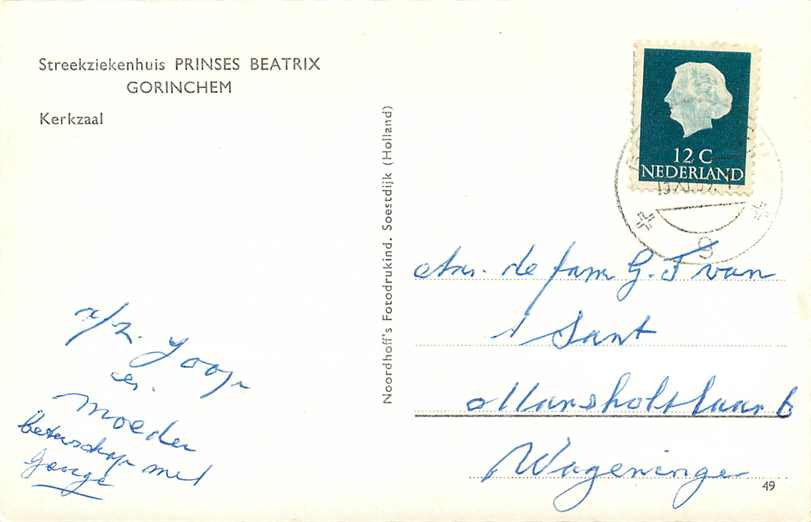 Streekziekenhuis PRINSES BEATRIX
GORINCHEM
Kerkzaal
Noordhoff's Fotodrukind. Soestdijk (Holland)
12 C
NEDERLAND
9
Aan. de fam G. J van
't Sant
Marsholtlaan 6
Wageninge
49
a/z. Joop
en.
moeder
beterschap met